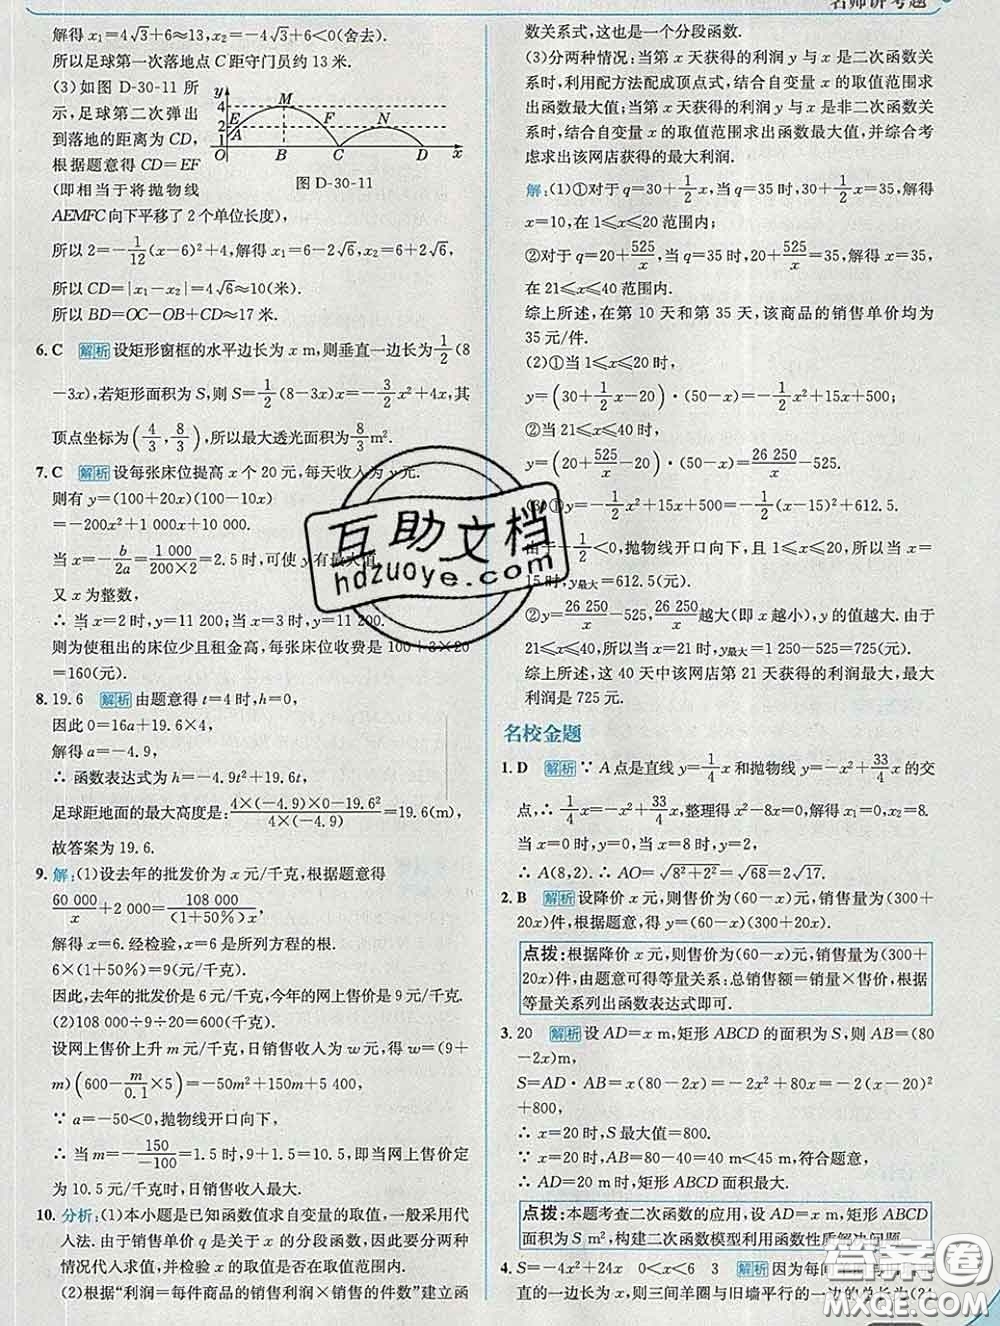 名师讲考题
解得 x₁=4√3+6≈13,x₂=-4√3+6<0(舍去).
所以足球第一次落地点 C 距守门员约 13 米.
(3)如图 D-30-11 所
示,足球第二次弹出
到落地的距离为 CD,
根据题意得 CD=EF
(即相当于将抛物线
y 4 2 1 O A E M F N B C D x
图 D-30-11
AEMFC向下平移了 2 个单位长度),
所以 2=-1/12(x-6)²+4,解得 x₁=6-2√6,x₂=6+2√6,
所以 CD=|x₁-x₂|=4√6≈10(米).
所以 BD=OC-OB+CD≈17 米.
6. C 解析 设矩形窗框的水平边长为 x m,则垂直一边长为1/2(8
-3x),若矩形面积为 S,则 S=1/2(8-3x)x=-3/2x²+4x,其
顶点坐标为(4/3,8/3),所以最大透光面积为8/3 m².
7. C 解析 设每张床位提高 x 个 20 元,每天收入为 y 元.
则有 y=(100+20x)(100-10x)
=-200x²+1 000x+10 000.
当 x=-b/2a=1 000/(200×2)=2.5 时,可使 y 有最大值.
又 x 为整数,
∴ 当 x=2 时,y=11 200;当 x=3 时,y=11 200.
则为使租出的床位少且租金高,每张床位收费是 100+3×20
=160(元).
8. 19.6 解析 由题意得 t=4 时,h=0,
因此 0=16a+19.6×4,
解得 a=-4.9,
∴ 函数表达式为 h=-4.9t²+19.6t,
足球距地面的最大高度是:(4×(-4.9)×0-19.6²)/(4×(-4.9))=19.6(m),
故答案为 19.6.
9. 解:(1)设去年的批发价为 x 元/千克,根据题意得
60 000/x+2 000=108 000/((1+50%)x),
解得 x=6.经检验,x=6 是所列方程的根.
6×(1+50%)=9(元/千克).
因此,去年的批发价是 6 元/千克,今年的网上售价是 9 元/千克.
(2)108 000÷9÷20=600(千克).
设网上售价上升 m 元/千克,日销售收入为 w 元,得 w=(9+
m)(600-m/0.1×5)=-50m²+150m+5 400,
∵ a=-50<0,抛物线开口向下,
∴ 当 m=-150/-100=1.5 时,9+1.5=10.5,即当网上售价定
为 10.5 元/千克时,日销售收入最大.
10. 分析:(1)本小题是已知函数值求自变量的取值,一般采用代
入法.由于销售单价 q 是关于 x 的分段函数,因此要分两种
情况代入求值,并检验 x 的取值是否在取值范围内.
(2)根据“利润=每件商品的销售利润×销售的件数”建立函
数关系式,这也是一个分段函数.
(3)分两种情况:当第 x 天获得的利润 y 与 x 是二次函数关
系时,利用配方法配成顶点式,结合自变量 x 的取值范围求
出函数最大值;当第 x 天获得的利润 y 与 x 是非二次函数关
系时,结合自变量 x 的取值范围求出函数最大值,并综合考
虑求出该网店获得的最大利润.
解:(1)①对于 q=30+1/2x,当 q=35 时,30+1/2x=35,解得
x=10,在 1≤x≤20 范围内;
②对于 q=20+525/x,当 q=35 时,20+525/x=35,解得 x=35,
在 21≤x≤40 范围内.
综上所述,在第 10 天和第 35 天,该商品的销售单价均为
35 元/件.
(2)①当 1≤x≤20 时,
y=(30+1/2x-20)·(50-x)=-1/2x²+15x+500;
②当 21≤x≤40 时,
y=(20+525/x-20)·(50-x)=26 250/x-525.
(3)①y=-1/2x²+15x+500=-1/2(x-15)²+612.5.
由于-1/2<0,抛物线开口向下,且 1≤x≤20,所以当 x=
15时,y最大=612.5(元).
②y=26 250/x-525,26 250/x越大(即 x 越小),y 的值越大.由于
21≤x≤40,所以当 x=21 时,y最大=1 250-525=725(元).
综上所述,这 40 天中该网店第 21 天获得的利润最大,最大
利润是 725 元.
名校金题
1. D 解析 ∵ A 点是直线 y=1/4x 和抛物线 y=-x²+33/4x 的交
点,∴ 1/4x=-x²+33/4x,整理得 x²-8x=0,解得 x₁=0,x₂=8.
当 x=0 时,y=0;当 x=8 时,y=2,
∴ A(8,2). ∴ AO=√(8²+2²)=√68=2√17.
2. B 解析 设降价 x 元,则售价为(60-x)元,销售量为(300+
20x)件,根据题意,得 y=(60-x)(300+20x).
点拨:根据降价 x 元,则售价为(60-x)元,销售量为(300+
20x)件,由题意可得等量关系:总销售额=销量×售价,根据
等量关系列出函数表达式即可.
3. 20 解析 设 AD=x m,矩形 ABCD 的面积为 S,则 AB=(80
-2x)m,
S=AD·AB=x(80-2x)=-2x²+80x=-2(x-20)²
+800,
∴ x=20时,S最大值=800.
∵ x=20时,80-2x=80-40=40 m<45 m,符合题意,
∴ AD=20 m时,矩形 ABCD 面积最大.
点拨:本题考查二次函数的应用,设 AD=x m,矩形 ABCD
面积为 S m²,构建二次函数模型利用函数性质解决问题.
4. S=-4x²+24x 0<x<6 3 解析 因为每间
直的一边长为 x,则三间羊圈与旧墙平行的一边的总长为(24
互助文档
hdzuoye.com
答案圈
MXQE.COM